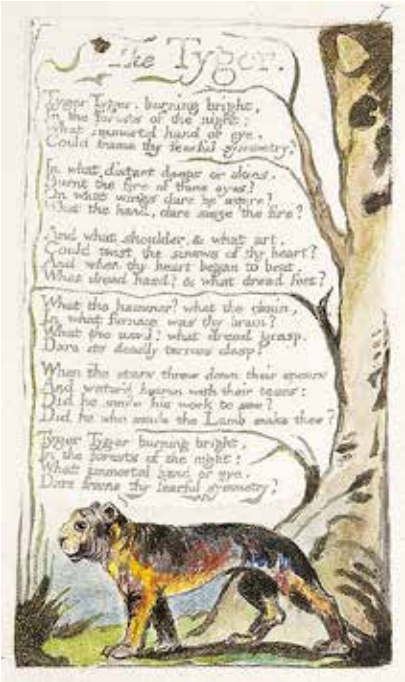 7
The Tyger.
Tyger Tyger, burning bright,
In the forests of the night;
What immortal hand or eye,
Could frame thy fearful symmetry?
In what distant deeps or skies,
Burnt the fire of thine eyes?
On what wings dare he aspire?
What the hand, dare sieze the fire?
And what shoulder, & what art,
Could twist the sinews of thy heart?
And when thy heart began to beat,
What dread hand? & what dread feet?
What the hammer? what the chain,
In what furnace was thy brain?
What the anvil? what dread grasp,
Dare its deadly terrors clasp!
When the stars threw down their spears
And water'd heaven with their tears:
Did he smile his work to see?
Did he who made the Lamb make thee?
Tyger Tyger burning bright,
In the forests of the night:
What immortal hand or eye,
Dare frame thy fearful symmetry?